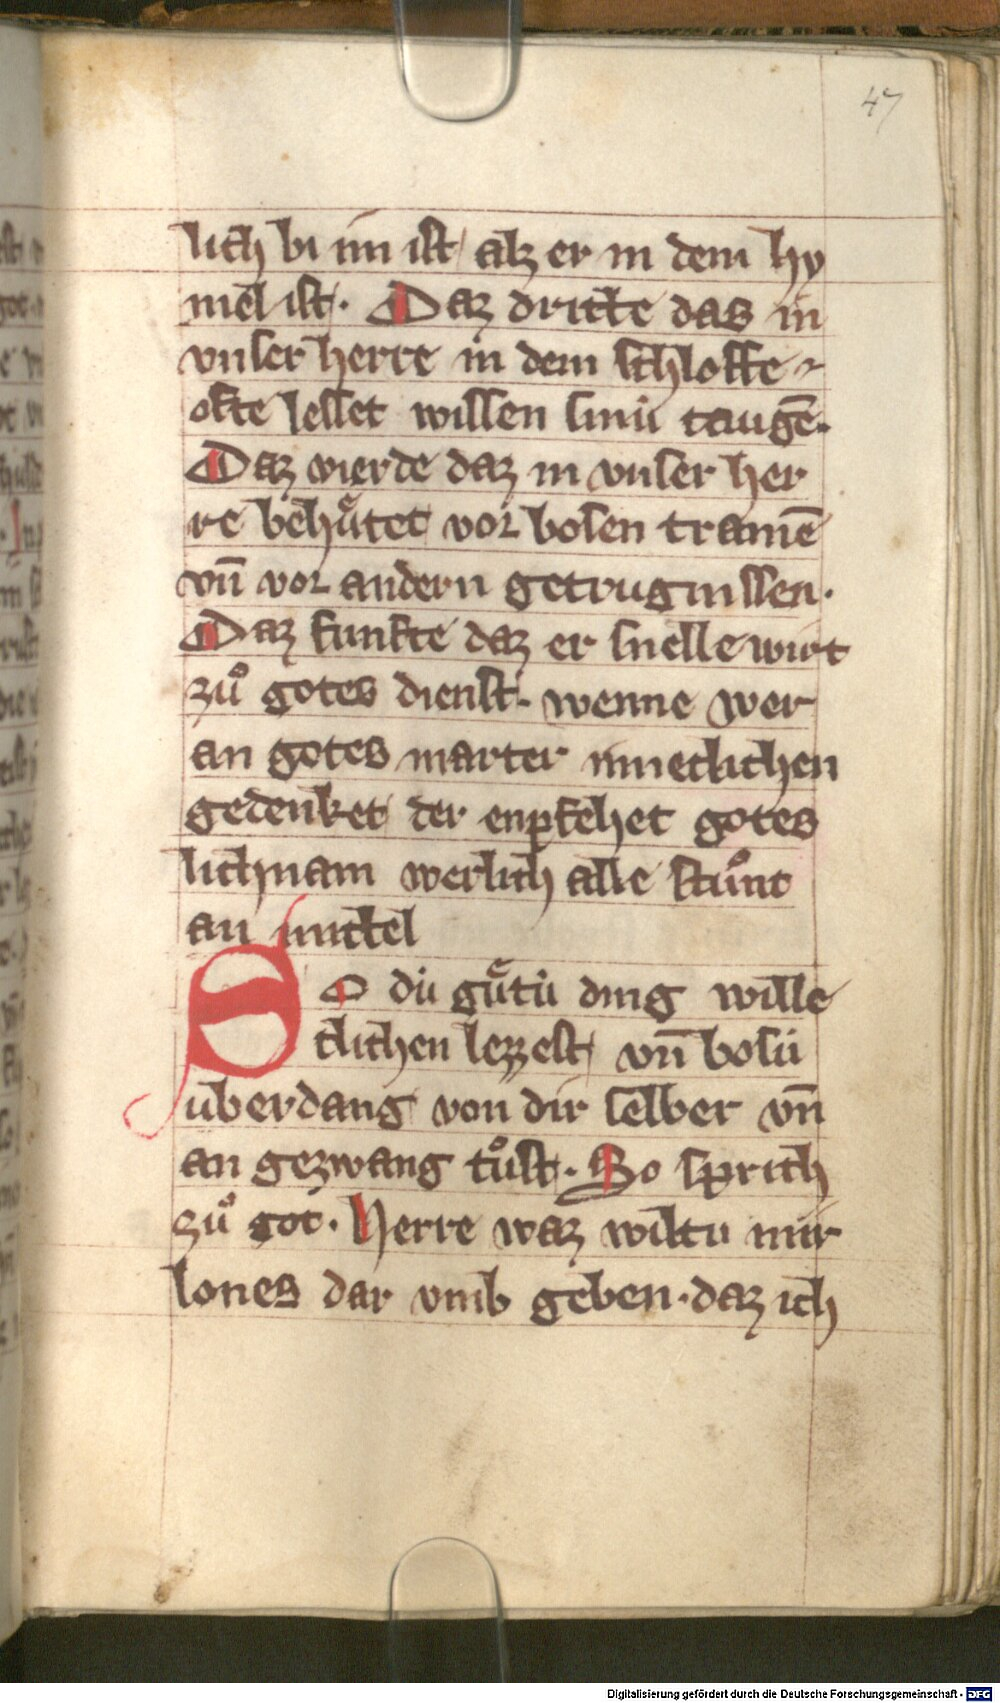 47
lich bi im ist alz er in dem hy
mel ist. Daz dritte das in
vnser herre in dem schloffe
ofte lesset wissen sinü taugē.
Daz vierde daz in vnser her
re behuͤtet vor bosen tramē
vn̄ vor andern getrugnissen.
Daz funfte daz er snelle wirt
zuͦ gotes dienst. wenne wer
an gotes marter innetlichen
gedenket der enpfehet gotes
lichnam werlich alle stuͦnt
an mittel
SO dü guͤtü ding wille
tlichen lezzest vn̄ bosü
überdang von dir selber vn̄
an gezwang tuͦst. So sprich
zuͦ got. Herre waz wiltu mir
lones dar vmb geben. daz ich
Digitalisierung gefördert durch die Deutsche Forschungsgemeinschaft - DFG